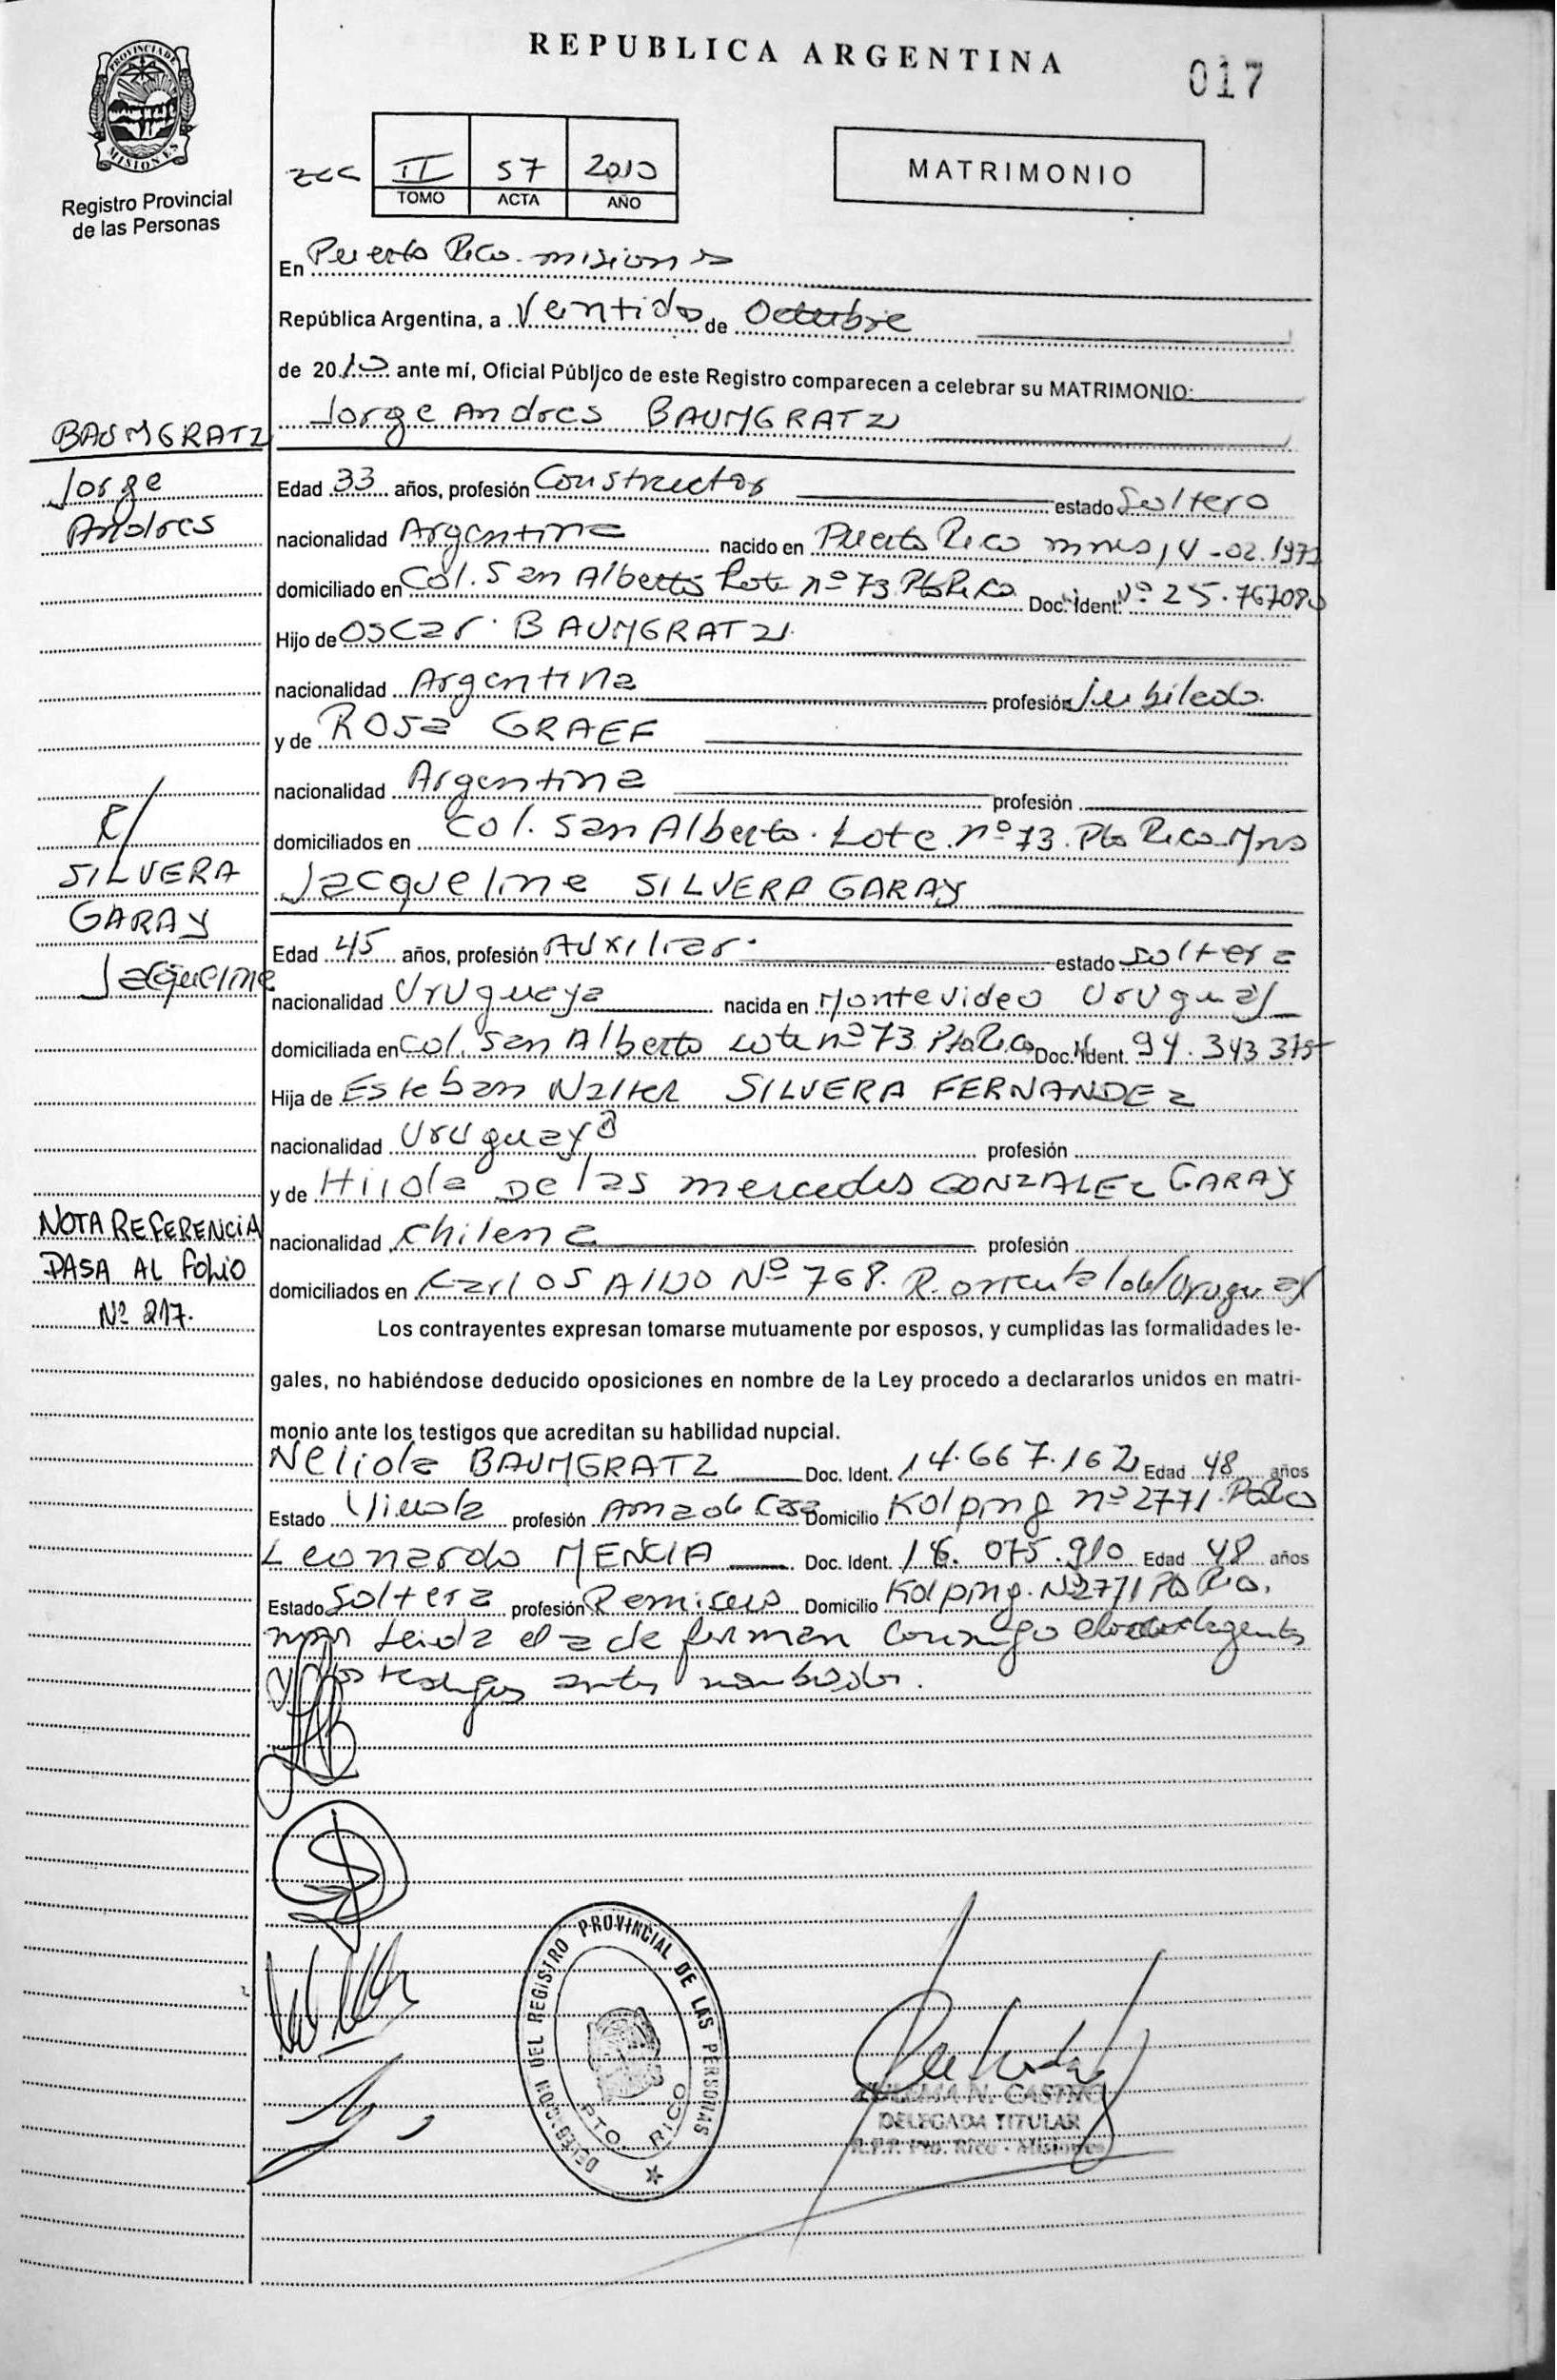 REPUBLICA ARGENTINA
017
PROVINCIA DE MISIONES
Registro Provincial
de las Personas
II 57 2010
TOMO ACTA AÑO
MATRIMONIO
En Puerto Rico. misiones
República Argentina, a Ventidos de Octubre
de 2010 ante mí, Oficial Público de este Registro comparecen a celebrar su MATRIMONIO:
Jorge Andres BAUMGRATZ
BAUMGRATZ
Jorge
Andres
Edad 33 años, profesión Constructor estado Soltero
nacionalidad Argentina nacido en Puerto Rico mnes
domiciliado en Col. San Alberto Lote nº 73 Pto Rico Doc. Ident. Nº 25.767080
Hijo de Oscar BAUMGRATZ
nacionalidad Argentina profesión Jubilado
y de Rosa GRAEF
nacionalidad Argentina profesión
domiciliados en Col. San Alberto. Lote nº 73. Pto Rico Mnes
Jacqueline SILVERA GARAY
R/
SILVERA
GARAY
Jacqueline
Edad 45 años, profesión Auxiliar estado soltera
nacionalidad Uruguaya nacida en Montevideo Uruguay
domiciliada en Col. San Alberto Lote nº 73 Pto Rico Doc. Ident. 94.343375
Hija de Esteban Walter SILVERA FERNANDEZ
nacionalidad Uruguayo profesión
y de Hilda De las mercedes GONZALEZ GARAY
nacionalidad chilena profesión
domiciliados en Carlos Nº 768. R. oriental del Uruguay
NOTA REFERENCIA
PASA AL FOLIO
Nº 217.
Los contrayentes expresan tomarse mutuamente por esposos, y cumplidas las formalidades le-
gales, no habiéndose deducido oposiciones en nombre de la Ley procedo a declararlos unidos en matri-
monio ante los testigos que acreditan su habilidad nupcial.
Nelida BAUMGRATZ Doc. Ident. 14.667.162 Edad 48 años
Estado Viuda profesión Ama de Casa Domicilio Kolping nº 2771 Pto Rico
Leonardo MENCIA Doc. Ident. 16.075.910 Edad 48 años
Estado Soltera profesión Remisero Domicilio Kolping Nº 2771 Pto Rico.
Leida el acta firman conmigo
y los testigos antes nombrados.
DELEGACION DEL REGISTRO PROVINCIAL DE LAS PERSONAS
PTO. RICO
ZULEMA N. CASTRO
DELEGADA TITULAR
R.P.P. Pto. Rico - Misiones